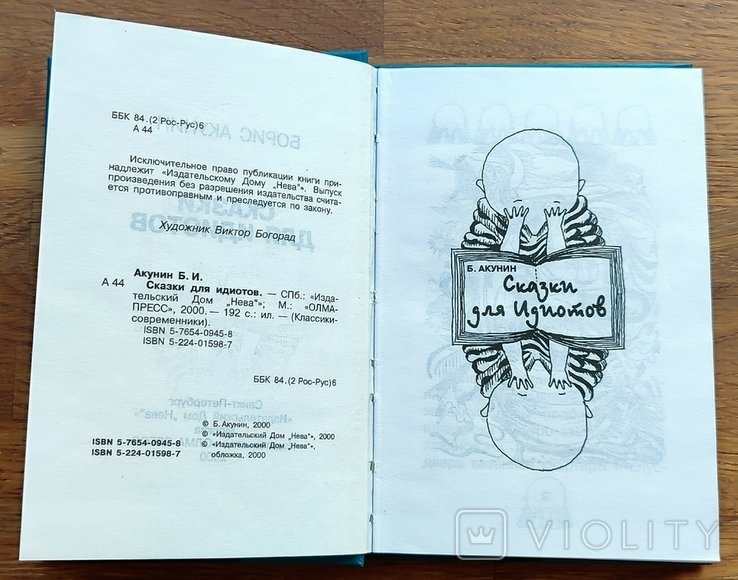 ББК 84.(2 Рос-Рус)6
А 44
Исключительное право публикации книги при-
надлежит «Издательскому Дому „Нева"». Выпуск
произведения без разрешения издательства счита-
ется противоправным и преследуется по закону.
Художник Виктор Богорад
Акунин Б. И.
А 44 Сказки для идиотов. — СПб.: «Изда-
тельский Дом „Нева"»; М.: «ОЛМА-
ПРЕСС», 2000.— 192 с.: ил. — (Классики-
современники).
ISBN 5-7654-0945-8
ISBN 5-224-01598-7
ББК 84.(2 Рос-Рус)6
© Б. Акунин, 2000
ISBN 5-7654-0945-8 © «Издательский Дом „Нева"», 2000
ISBN 5-224-01598-7 © «Издательский Дом „Нева"»,
обложка, 2000
Б. АКУНИН
Сказки
для Идиотов
VIOLITY